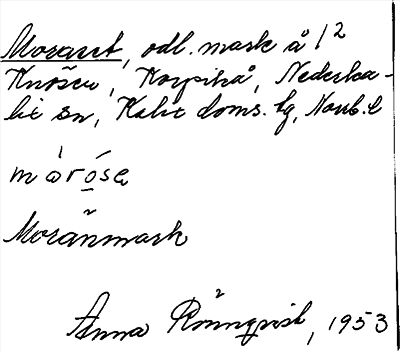 Moraset, odl. mark å 1²
Knösen, Korpikå, Nederka-
lix sn, Kalix doms. lg, Norrb. l
mòróse
Moränmark
Anna Rönnqvist, 1953